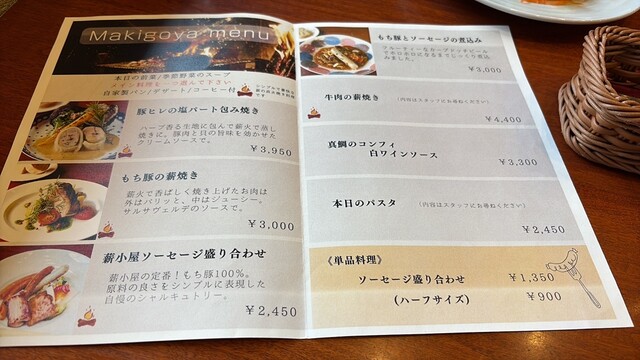 Makigoya menu
本日の前菜/季節野菜のスープ
メイン料理を一つ選んで下さい
自家製パン/デザート/コーヒー付
豚ヒレの塩パート包み焼き
ハーブ香る生地に包んで薪火で蒸し
焼きに。豚肉と貝の旨味を効かせた
クリームソースで。
￥3,950
もち豚の薪焼き
薪火で香ばしく焼き上げたお肉は
外はパリッと、中はジューシー。
サルサヴェルデのソースで。
￥3,000
薪小屋ソーセージ盛り合わせ
薪小屋の定番！もち豚100%。
原料の良さをシンプルに表現した
自慢のシャルキュトリー。
￥2,450
もち豚とソーセージの煮込み
フルーティーなカーブドッチビール
でホロホロになるまでじっくり煮込
みました。
￥3,000
牛肉の薪焼き （内容はスタッフにお尋ねください）
￥4,400
真鯛のコンフィ
白ワインソース
￥3,300
本日のパスタ （内容はスタッフにお尋ねください）
￥2,450
《単品料理》
ソーセージ盛り合わせ ￥1,350
(ハーフサイズ) ￥900